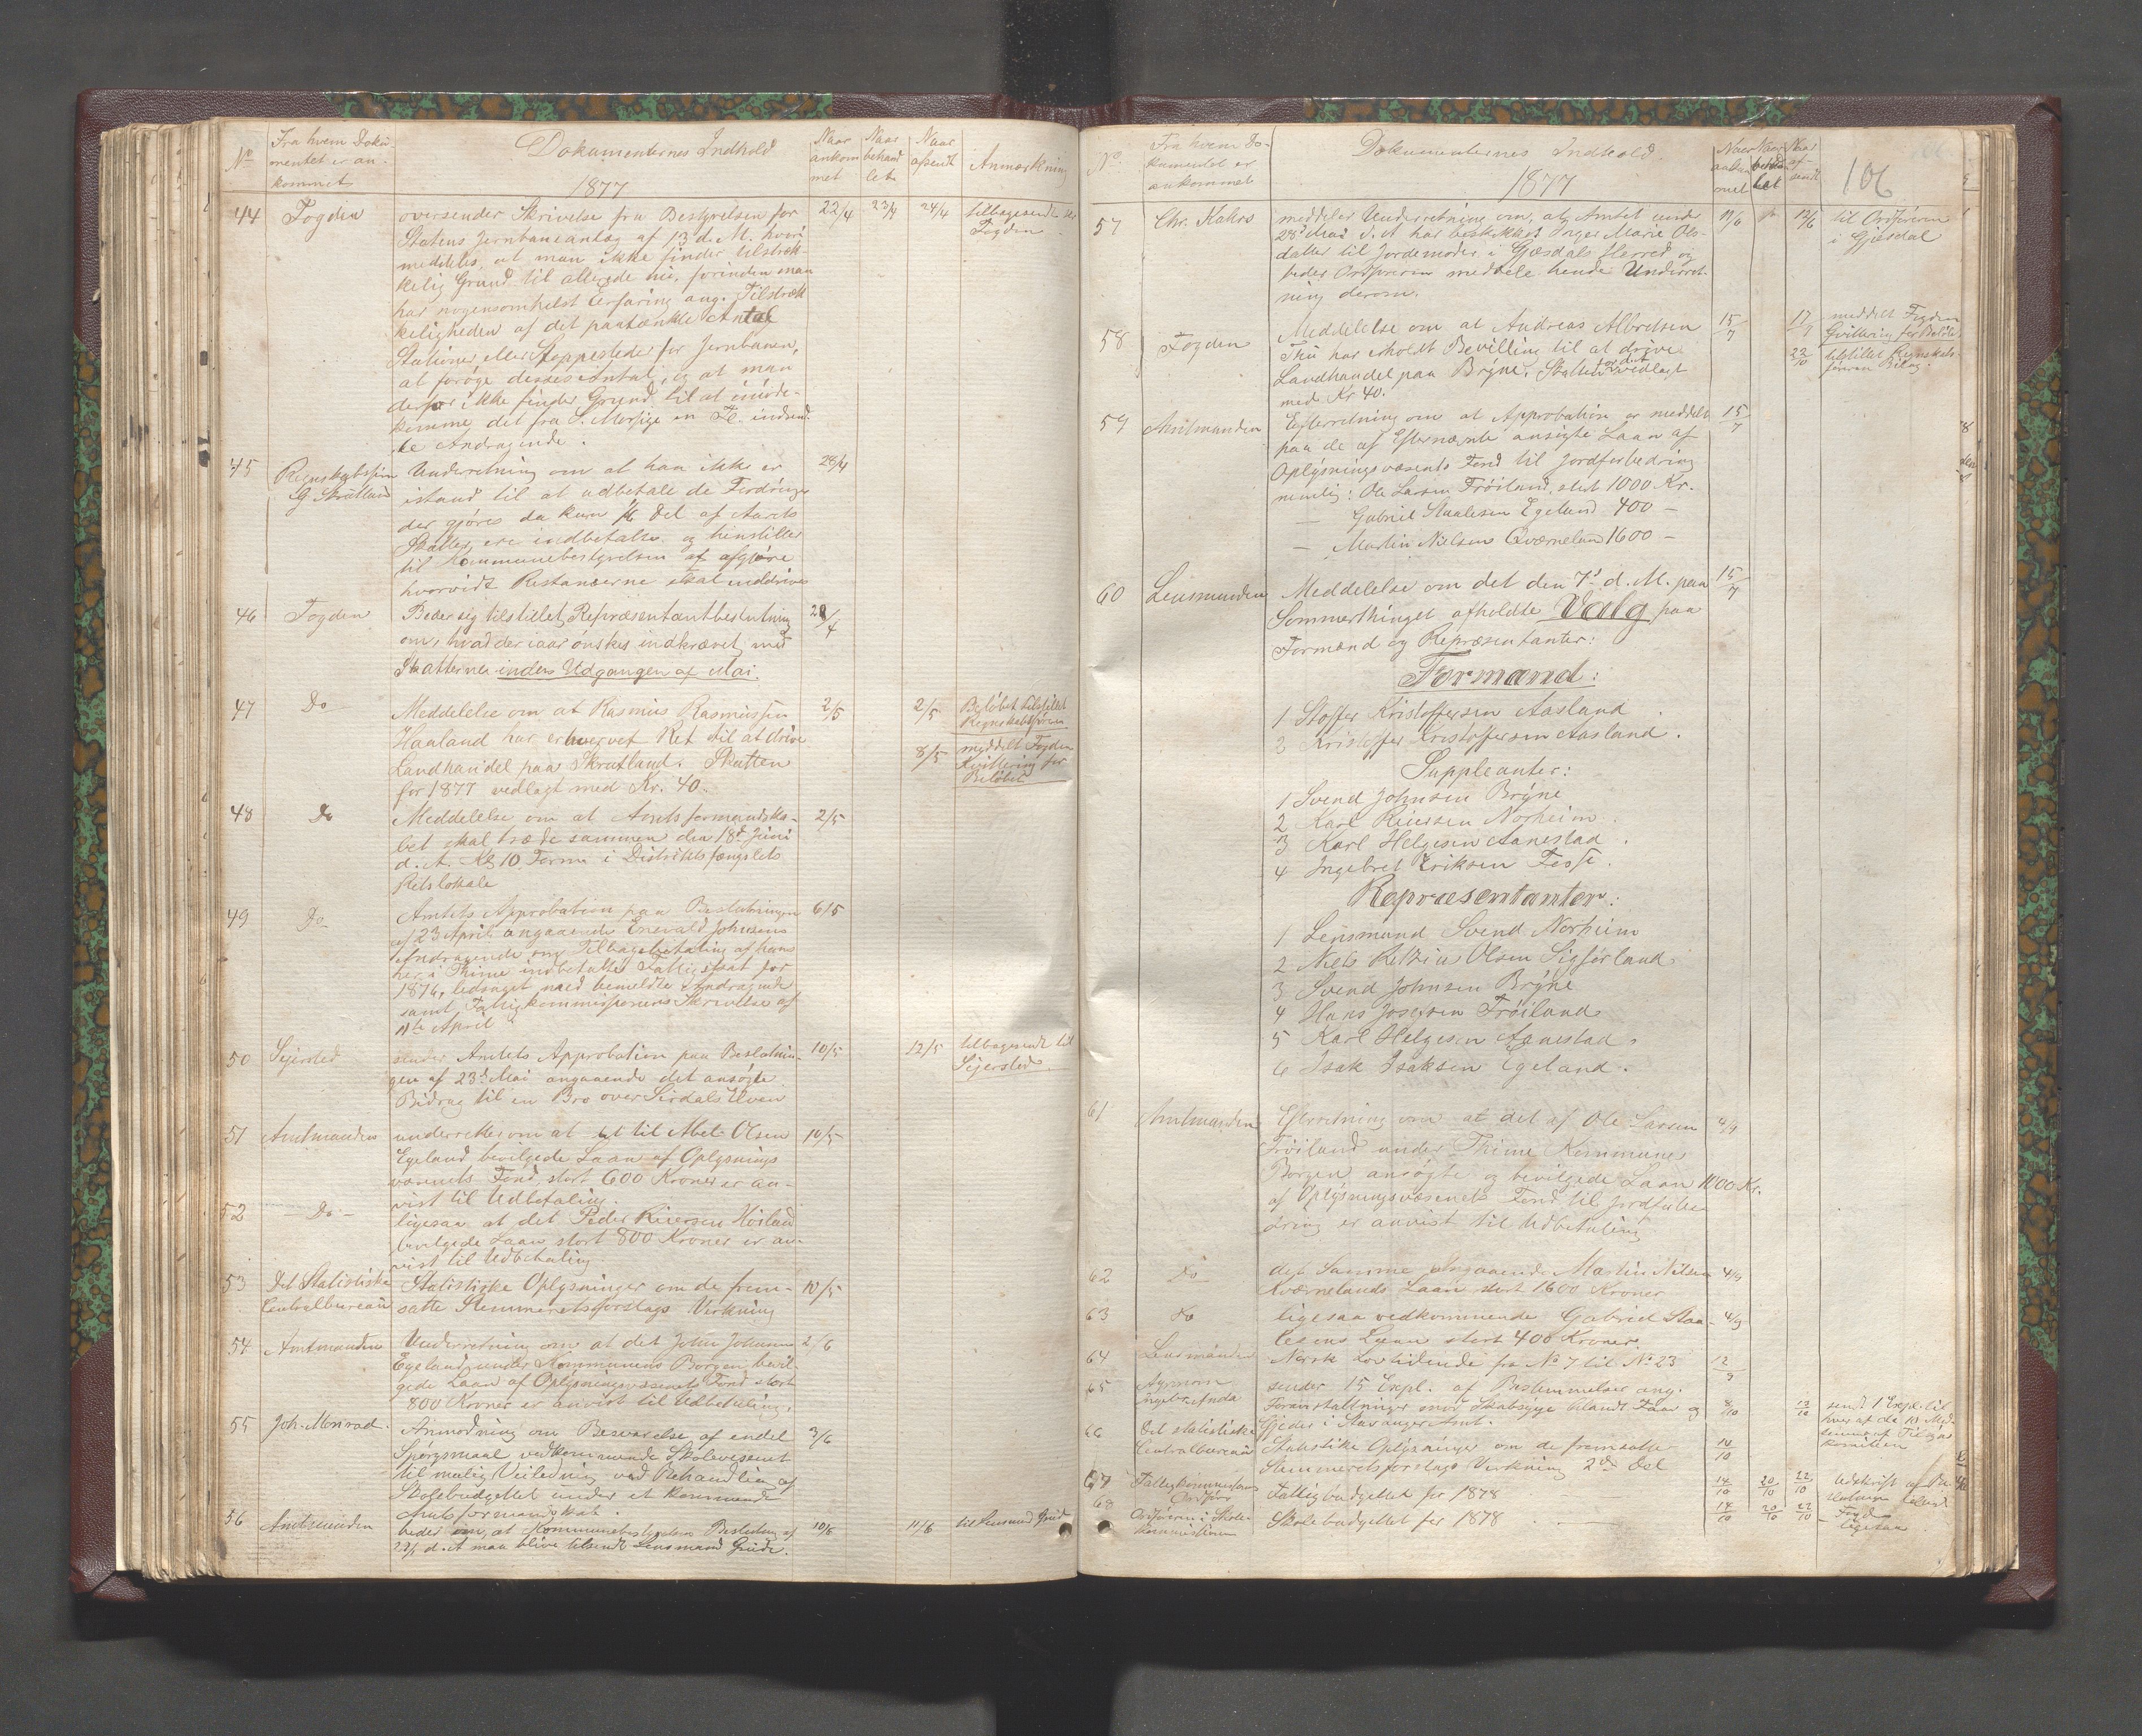 No
Fra hvem Doku-
mentet er an-
kommet
Dokumenternes Indhold
1877
Naar
ankom
met
Naar
behand
let
Naar
afsendt
Anmærkning
44 Fogden oversender Skrivelse fra Bestyrelsen for 22/4 23/4 24/4 tilbagesendt
Statens Jernbaneanlæg af 13 d. M. hvori Fogden
meddeles, at man ikke finder tilstræk-
kelig Grund til allerede nu, forinden man
har nogensomhelst Erfaring ang. Tilstræk
keligheden af det paatænkte Antal
Stationer eller Stoppesteder for Jernbanen,
at forøge dennes Antal, og at man
derfor ikke finder Grund til at imøde-
komme det fra S. Mossige en Fl. indsend-
te Andragende.
45 Underretning om at han ikke er 28/4
istand til at udbetale de Fordringer
der gjøres da kun 1/6 Del af Aarets
Skatter ere indbetalte og henstiller
til Kommunebestyrelsen at afgjøre
hvorvidt Restancerne skal inddrives
46 Fogden Beder sig tilstillet Repræsentantbeslutning 28/4
om, hvad der iaar ønskes indkrævet med
Skatterne inden Udgangen af Mai.
47 Do Meddelelse om at Rasmus Rasmussen 2/5 2/5 Beløbet tilstillet
Regnskabsføren
Haaland har erhvervet Ret til at drive
8/5 meddelt Fogden
Landhandel paa Skrutland. Skatten Kvittering for
for 1877 vedlagt med Kr. 40. Beløbet
48 Do Meddelelse om at Amtsformandska- 2/5
bet skal træde sammen den 18de Juni
d. A. Kl 10 Form i Distriktsfængslets
Retslokale
49 Do Amtets Approbation paa Beslutningen 6/5
af 23 April angaaende Enevald Johnsens
Andragende om Tilbagebetaling af hans
her i Thime indbetalte Fattigskat for
1876, ledsaget med bemeldte Andragende
samt Fattigkommissionens Skrivelse af
11te April
50 Sejersted sender Amtets Approbation paa Beslutnin- 10/5 12/5 tilbagesendt til
gen af 23de Mai angaaende det ansøgte Sejersted.
Bidrag til en Bro over Sirdals Elven
51 Amtmanden underrettes om at det til Abel Olsen 10/5
Egeland bevilgede Laan af Oplysnings
væsenets Fond, stort 600 Kroner er an-
vist til Udbetaling.
52 — Do — ligesaa at det Peder Reiersen Høiland
bevilgede Laan stort 800 Kroner er an-
vist til Udbetaling
53 Det Statistiske Statistiske Oplysninger om de frem- 10/5
Centralbureau satte Stemmeretsforslags Virkning
54 Amtmanden Underretning om at det John Johnsen 2/6
Egeland under Kommunens Borgen bevil-
gede Laan af Oplysningsvæsenets Fond stort
800 Kroner er anvist til Udbetaling.
55 Joh. Monrad. Anmodning om Besvarelse af endel 3/6
Spørgsmaal vedkommende Skolevæsenet
til mulig Veiledning ved Behandling af
Skolebudgettet under et kommende
Amtsformandskab.
56 Amtmanden beder om, at Kommunebestyrelsens Beslutning af 10/6 11/6 til Lensmand Grude
d. A. maa blive tilsendt Lensmand Grude.
No.
Fra hvem Do-
kumentet er
ankommet
Dokumenternes Indhold
1877
Naar
ankom
met
Naar
behand
let
Naar
af-
sendt
106
57 Chr. Kahrs meddeler Underretning om, at Amtet under 11/6 12/6 til Ordføreren
28de Mai d. A har beskikket Inger Marie Ols- i Gjesdal
datter til Jordemoder i Gjæsdals Herred og
beder Ordføreren meddele hende Underret-
ning derom.
58 Fogden Meddelelse om at Andreas Albretsen 15/7 17/7 meddelt Fogden
Kvittering for Beløb
Thu har erholdt Bevilling til at drive 22/10 tilstillet Regnskabs-
føreren Beløb.
Landhandel paa Bryne. Skatten vedlagt
med Kr 40.
59 Amtmanden Efterretning om at Approbation er meddelt 15/7
paa de af Efternævnte ansøgte Laan af
Oplysningsvæsenets Fond til Jordforbedring
nemlig: Ole Larsen Frøiland, stort 1000 Kr.
— Gabriel Staalesen Egeland 400 —
— Martin Nielsen Qværneland 1600 —
60 Lensmanden Meddelelse om det den 7de d. M. paa 15/7
Sommerthinget afholdte Valg paa
Formænd og Repræsentanter:
Formænd:
1 Stoffer Kristoffersen Aasland
2 Kristoffer Kristoffersen Aasland.
Suppleanter:
1 Svend Johnsen Bryne
2 Karl Reiersen Norheim.
3 Karl Helgesen Aanestad.
4 Ingebret Eriksen Fosse.
Repræsentanter:
1 Lensmand Svend Norheim
2 Niels Olsen
3 Svend Johnsen Bryne
4 Hans Josefsen Frøiland
5 Karl Helgesen Aanestad.
6 Isak Isaksen Egeland.
61 Amtmanden Efterretning om at det af Ole Larsen 4/9
Frøiland under Thime Kommunes
Borgen ansøgte og bevilgede Laan 1000 Kr.
af Oplysningsvæsenets Fond til Jordforbe-
dring er anvist til Udbetaling
62 Do det Samme angaaende Martin Nilsen 4/9
Kværnelands Laan stort 1600 Kroner
63 Do ligesaa vedkommende Gabriel Staa- 4/9
lesens Laan stort 400 Kroner.
64 Lensmanden Norsk Lovtidende fra No 7 til No 23 12/9
65 Agronom sender 15 Expl. af Bestemmelser ang. 8/10 12/10 sendt 1 Expl. til
hver af de 10 Med-
Ingebr. Anda Foranstaltninger mod Skabsyge blandt Faar og
Gjeder i Stavanger Amt.
66 Det statistiske
Centralbureau Statistiske Oplysninger om de fremsatte 14/10
Stemmeretsforslags Virkning 2den Del
67 Fattigkommissionens
Ordfører Fattigbudgettet for 1878 14/10 20/10 22/10 Udskrift af Be-
68 Ordføreren i Skole-
kommissionen Skolebudgettet for 1878 14/10 20/10 22/10
Fogden
ligesaa